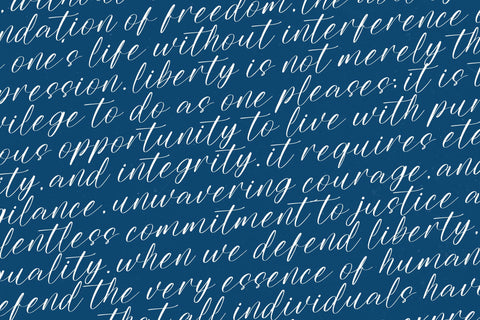 ndation of freedom. the
one's life without interference
pression. liberty is not merely th
vilege to do as one pleases; it is t
ous opportunity to live with pur
ity. and integrity. it requires ete
gilance. unwavering courage. and
lentless commitment to justice a
quality. when we defend liberty.
efend the very essence of human
that all individuals have